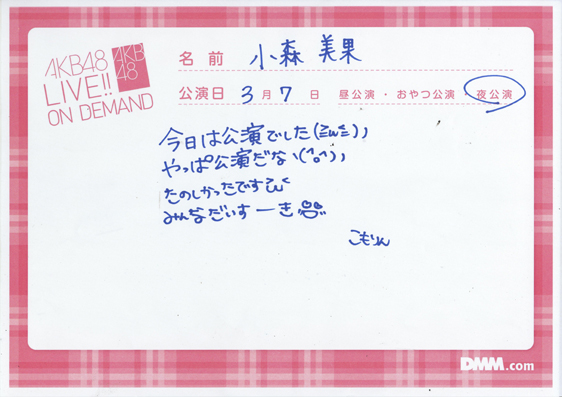 AKB48
LIVE!!
ON DEMAND
AKB
48
名前 小森 美果
公演日 3月7日 昼公演・おやつ公演・夜公演
今日は公演でした(ミ'ω'ミ)))
やっぱ公演だなヽ(^o^)))
たのしかったです
みんなだいすーき
こもりん
DMM.com